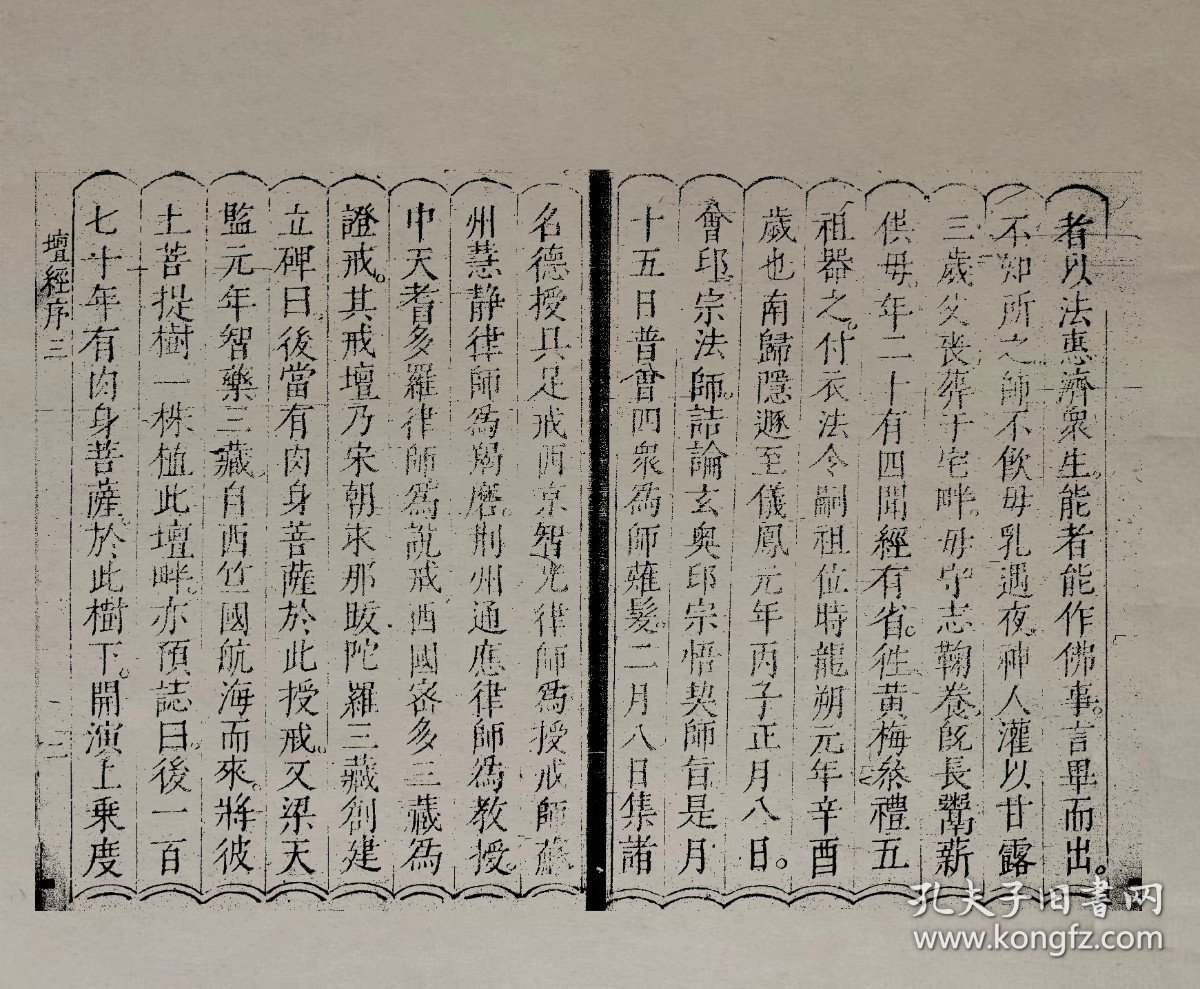 者以法惠濟衆生。能者能作佛事。言畢而出。
不知所之師不飲毋乳遇夜。神人灌以甘露
三歲父喪葬于宅畔。毋守志鞠養。旣長鬻薪
供毋。年二十有四聞經有省。徃黃梅叅禮五
祖器之。付衣法令嗣祖位時龍朔元年辛酉
歲也南歸隱遯至儀鳳元年丙子正月八日。
會印宗法師。詰論玄奧印宗悟契師旨是月
十五日普會四衆爲師薙髮。二月八日集諸
名德授具足戒西京智光律師爲授戒師蘇
州慧靜律師爲羯磨。荆州通應律師爲教授。
中天耆多羅律師爲說戒西國宻多三藏爲
證戒。其戒壇乃宋朝求那跋陀羅三藏創建
立碑曰後當有肉身菩薩於此授戒。又梁天
監元年智藥三藏。自西竺國航海而來。將彼
土菩提樹一株植此壇畔。亦預誌曰。後一百
七十年有肉身菩薩。於此樹下。開演上乗度
壇經序 三
二
孔夫子旧书网
www.kongfz.com